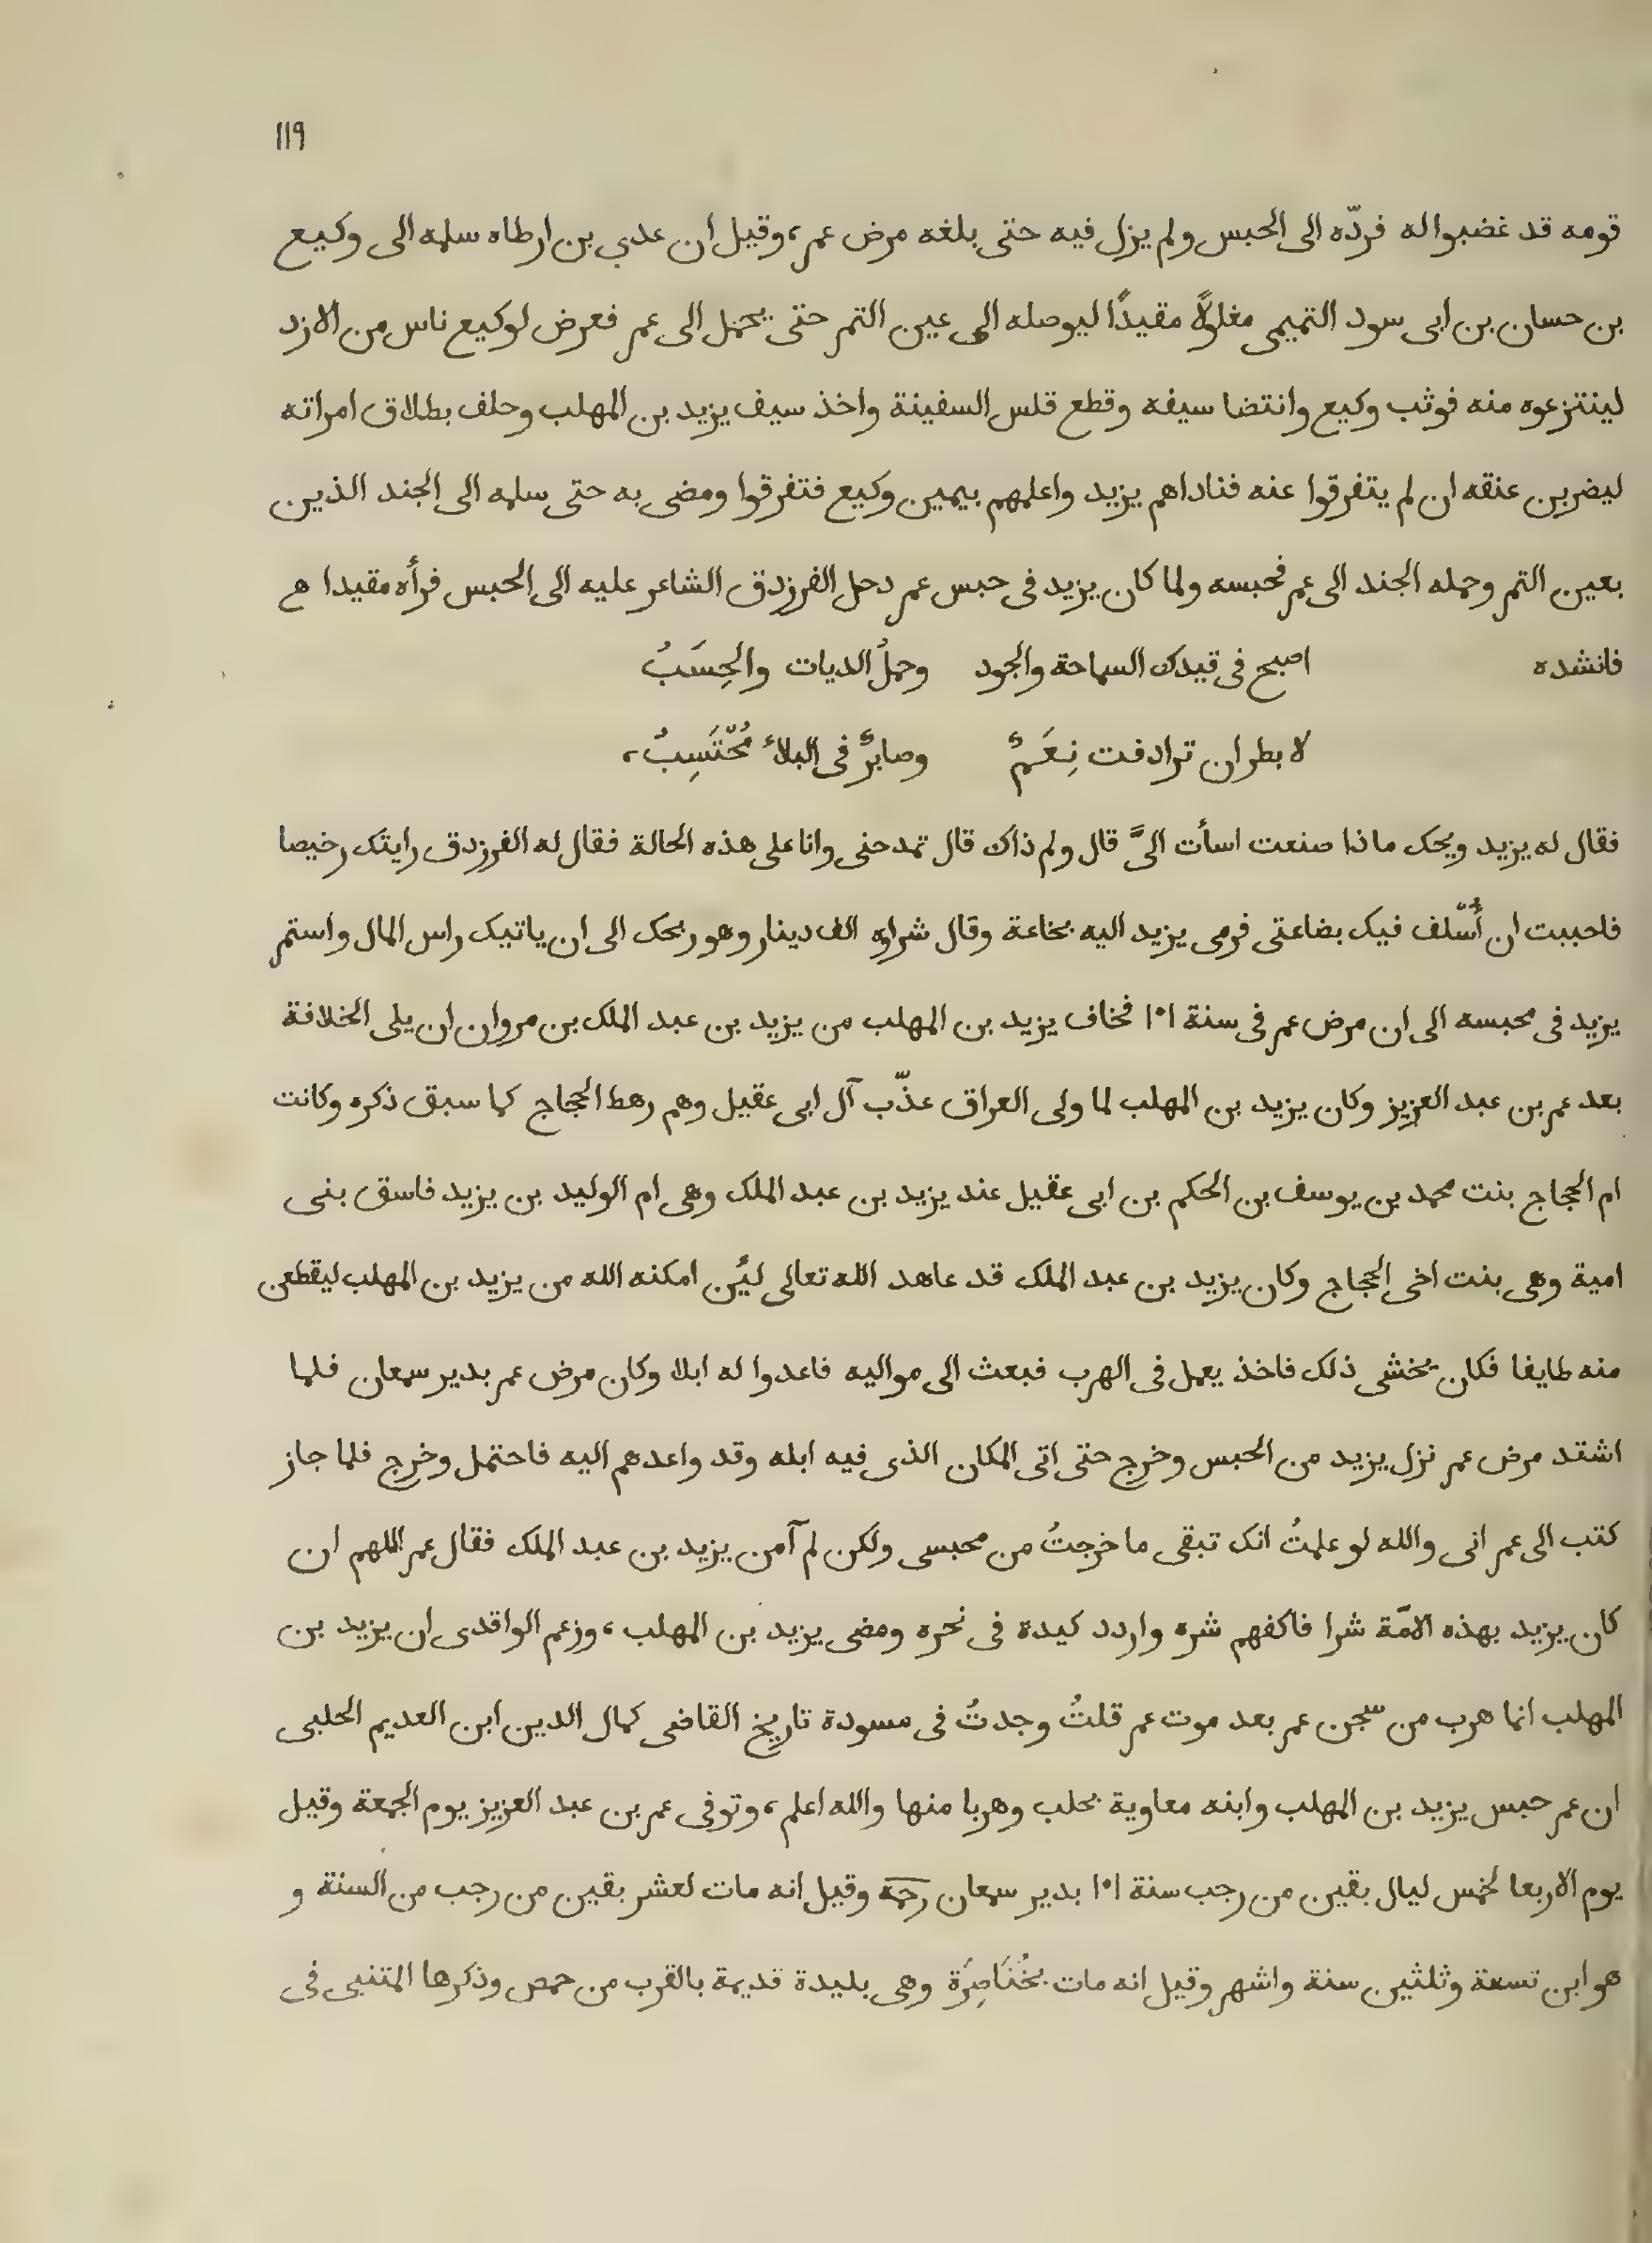 ١١٩
قومه قد غضبوا له فردّه الى الحبس ولم يزل فيه حتى بلغه مرض عمر، وقيل ان عدي بن ارطاه سلمه الى وكيع
بن حسان بن ابى سود التميمى مغلولًا مقيدًا ليوصله الى عين التمر حتى يحمل الى عمر فعرض لوكيع ناس من الازد
لينتزعوه منه فوثب وكيع وانتضا سيفه وقطع قلس السفينة واخذ سيف يزيد بن المهلب وحلف بطلاق امراته
ليضربن عنقه ان لم يتفرقوا عنه فناداهم يزيد واعلمهم بيمين وكيع فتفرقوا ومضى به حتى سلمه الى الجند الذين
بعين التمر وحمله الجند الى عمر فحبسه ولما كان يزيد فى حبس عمر دحل الفرزدق الشاعر عليه الى الحبس فرأه مقيدا
فانشده اصبح فى قيدك السماحة والجود وحملُ الديات والحِسَبُ
لا بطر ان ترادفت نِعَمٌ وصابرٌ فى البلاءِ مُحْتَسِبُ،
فقال له يزيد ويحك ماذا صنعت اسأت الىَّ قال ولم ذاك قال تمدحنى وانا على هذه الحالة فقال له الفرزدق رايتك رخيصا
فاحببت ان أُسّلف فيك بضاعتى فرمى يزيد اليه بخاعة وقال شراوه الف دينار وهو ربحك الى ان ياتيك راس المال واستمر
يزيد فى محبسه الى ان مرض عمر فى سنة ١٠١ فخاف يزيد بن المهلب من يزيد بن عبد الملك بن مروان ان يلى الخلافة
بعد عمر بن عبد العزيز وكان يزيد بن المهلب لما ولى العراق عذّب آل ابى عقيل وهم رهط الحجاج كما سبق ذكره وكانت
ام الحجاج بنت محمد بن يوسف بن الحكم بن ابى عقيل عند يزيد بن عبد الملك وهى ام الوليد بن يزيد فاسق بنى
امية وهى بنت اخى الحجاج وكان يزيد بن عبد الملك قد عاهد الله تعالى لئن امكنه الله من يزيد بن المهلب ليقطعن
منه طايفا فكان يخشى ذلك فاخذ يعمل فى الهرب فبعث الى مواليه فاعدوا له ابلا وكان مرض عمر بدير سمعان فلما
اشتد مرض عمر نزل يزيد من الحبس وخرج حتى اتى المكان الذى فيه ابله وقد واعدهم اليه فاحتمل وخرج فلما جاز
كتب الى عمر انى والله لو علمتُ انك تبقى ما خرجتُ من محبسى ولكن لم آمن يزيد بن عبد الملك فقال عمر اللهم ان
كان يزيد بهذه الامّة شرا فاكفهم شره واردد كيدة فى نحره ومضى يزيد بن المهلب، وزعم الواقدى ان يزيد بن
المهلب انما هرب من سجن عمر بعد موت عمر قلتُ وجدتُ فى مسودة تاريخ القاضى كمال الدين ابن العديم الحلبى
ان عمر حبس يزيد بن المهلب وابنه معاوية بحلب وهربا منها والله اعلم، وتوفى عمر بن عبد العزيز يوم الجمعة وقيل
يوم الاربعا لخمس ليال بقين من رجب سنة ١٠١ بدير سمعان رحمه وقيل انه مات لعشر بقين من رجب من السنة و
هو ابن تسعة وثلثين سنة واشهر وقيل انه مات بخُنَاصِرَة وهى بليدة قديمة بالقرب من حمص وذكرها المتنبى فى